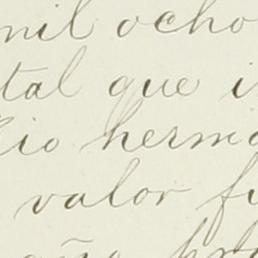 mil ocho
tal que i
lio herma
valor fi